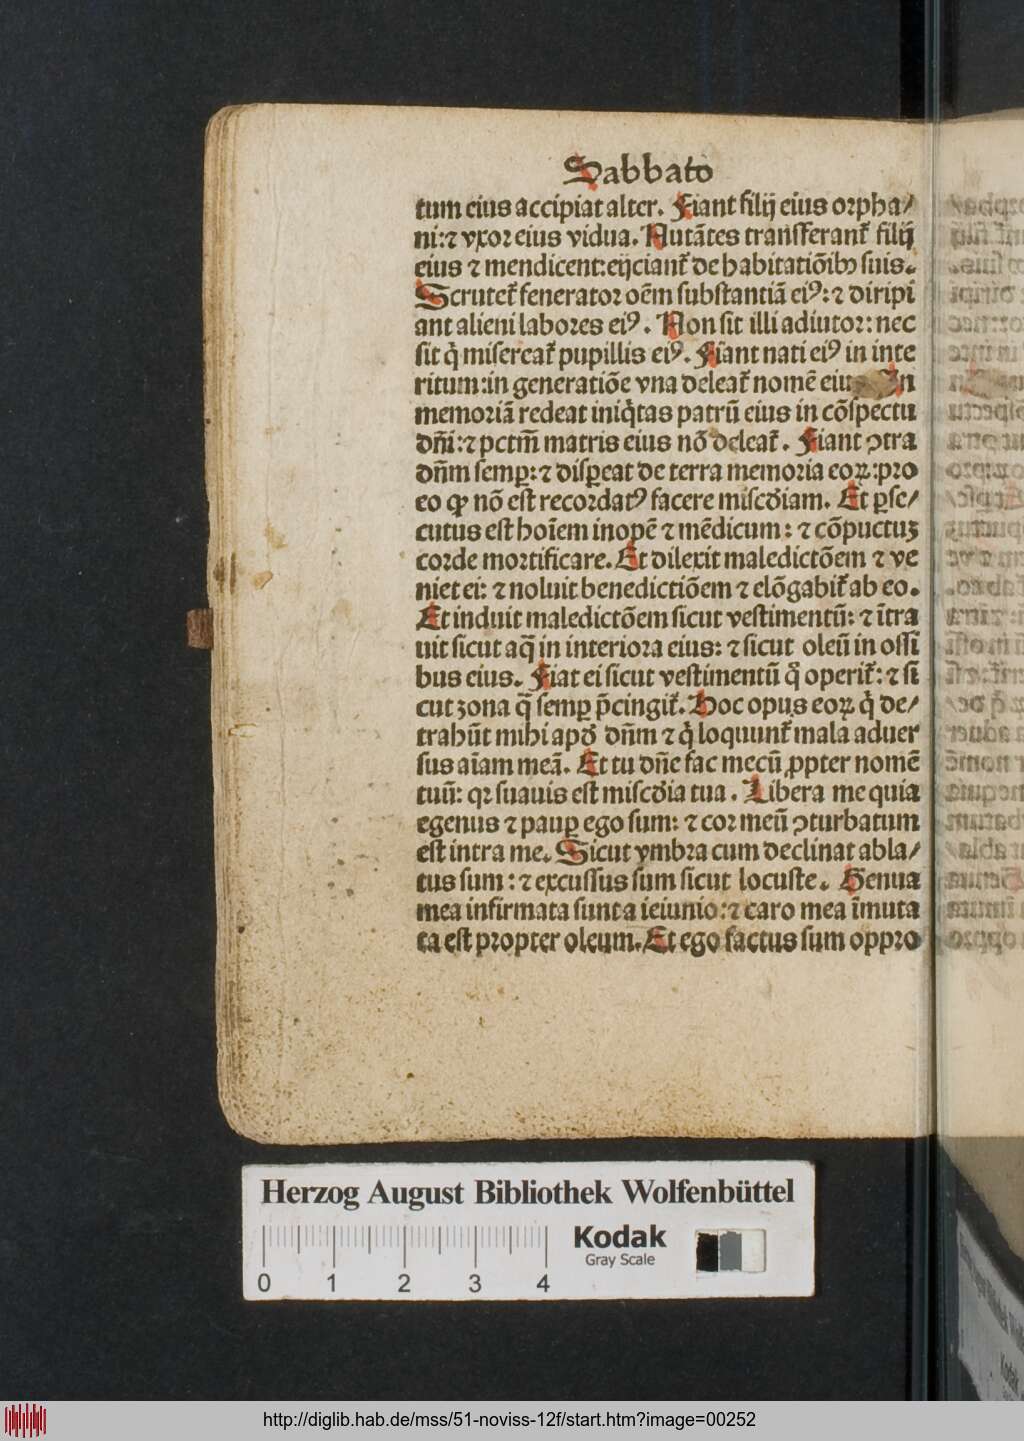 Sabbato
tum eius accipiat alter. Fiant filij eius orpha/
ni:⁊ vxor eius vidua. Nutãtes transferant᷑ filij
eius ⁊ mendicent:eijciant᷑ de habitatiõibꝰ suis.
Scrutet᷑ fenerator oẽm substantiã eiꝰ:⁊ diripi
ant alieni labores eiꝰ. Non sit illi adiutor: nec
sit q̇ misereat᷑ pupillis eiꝰ. Fiant nati eiꝰ in inte
ritum:in generatiõe vna deleat᷑ nomẽ eiu In
memoriã redeat iniq̇tas patrũ eius in cõspectu
dñi:⁊ pctm̃ matris eius nõ deleat᷑. Fiant ꝯtra
dñm semꝑ:⁊ disꝑeat de terra memoria eoꝝ:pro
eo ꝙ nõ est recordatꝰ facere misc̄diam. Et ꝑse/
cutus est hoĩem inopẽ ⁊ mẽdicum: ⁊ cõpunctuꝫ
corde mortificare. Et dilexit maledictõem ⁊ ve
niet ei: ⁊ noluit benedictiõem ⁊ elõgabit᷑ ab eo.
Et induit maledictõem sicut vestimentũ: ⁊ ĩtra
uit sicut aq̃ in interiora eius: ⁊ sicut oleũ in ossi
bus eius. Fiat ei sicut vestimentũ qͦ operit᷑: ⁊ si
cut zona q̃ semꝑ p̃cingit᷑. Hoc opus eoꝝ q̇ de/
trahũt mihi apd̕ dñm ⁊ q̇ loquunt᷑ mala aduer
sus aĩam meã. Et tu dñe fac mecũ ꝓpter nomẽ
tuũ: qꝛ suauis est misc̄dia tua. Libera me quia
egenus ⁊ pauꝑ ego sum: ⁊ cor meũ ꝯturbatum
est intra me. Sicut vmbra cum declinat abla/
tus sum: ⁊ excussus sum sicut locuste. Genua
mea infirmata sunt a ieiunio:⁊ caro mea ĩmuta
ta est propter oleum. Et ego factus sum oppro
Herzog August Bibliothek Wolfenbüttel
Kodak
Gray Scale
0 1 2 3 4
http://diglib.hab.de/mss/51-noviss-12f/start.htm?image=00252